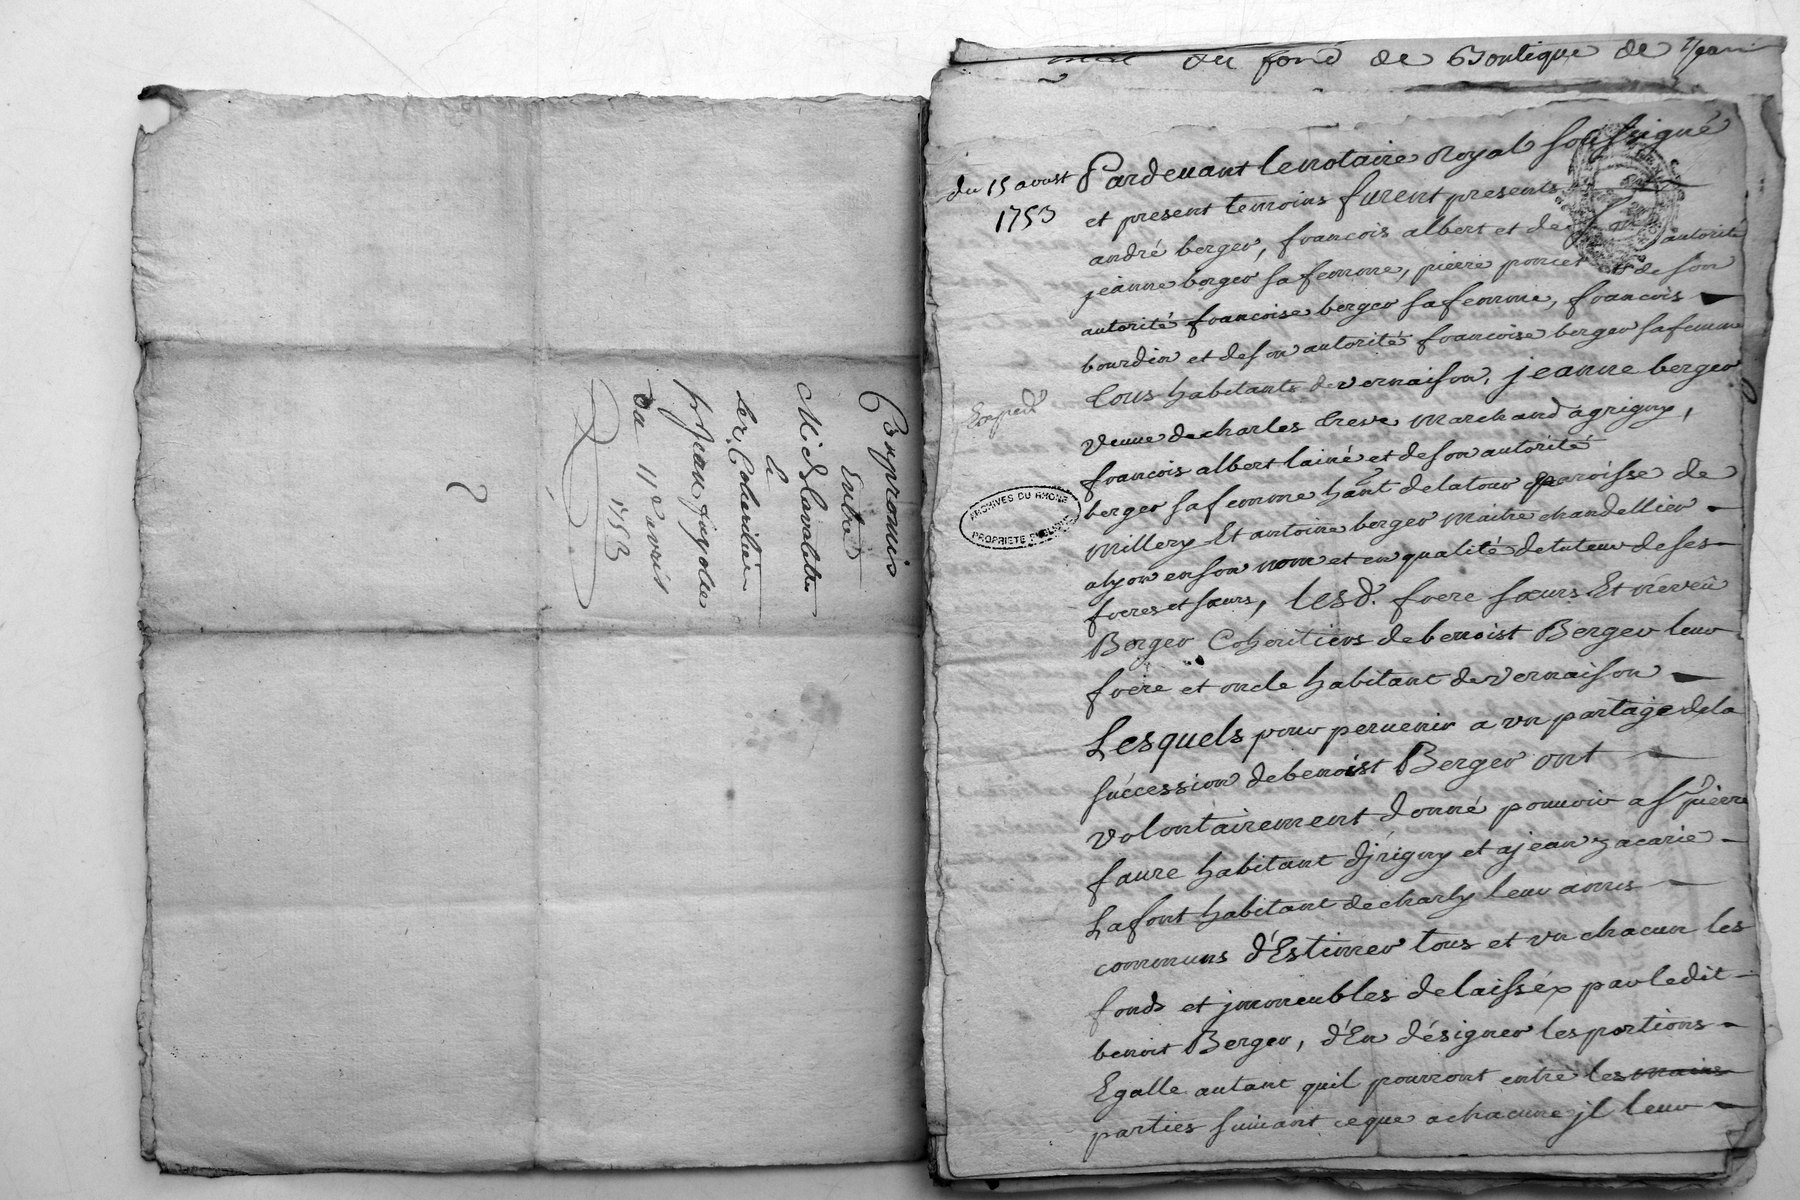 Compromis
Entre
à
fr Jean
du 11e avril
1753
du fond de Boutique de
du 15 aoust
1753
Expedié
ARCHIVES DU RHONE
PROPRIETE PUBLIQUE
Pardevant le notaire Royal soussigné
et present temoins furent presents
andré berger, francois albert et de autorité
jeanne berger sa femme, pierre poncet et de son
autorité francoise berger sa femme, francois
bourdin et de son autorité francoise berger sa femme
tous habitants de vernaison, jeanne berger
veuve de charles marchand a grigny,
francois albert lainé et de son autorité
berger sa femme hant de la tour paroisse de
millery Et antoine berger maitre chandellier
a lyon en son nom et en qualité de tuteur de ses
freres et sœurs, lesd. frere sœurs Et neveu
Berger Coheritiers de benoist Berger leur
frere et oncle habitant de vernaison
Lesquels pour pervenir a un partage de la
succession de benoist Berger ont
volontairement donné pouvoir a sr pierre
faure habitant djrigny et a jean zacarie
Lafont habitant de charly leur amis
communs d'Estimer tous et un chacun les
fonds et jmmeubles delaissés par ledit
benoit Berger, d'En désigner les portions
Egalle autant quil pourront entre les mains
parties suivant ce que a chacune jl leur